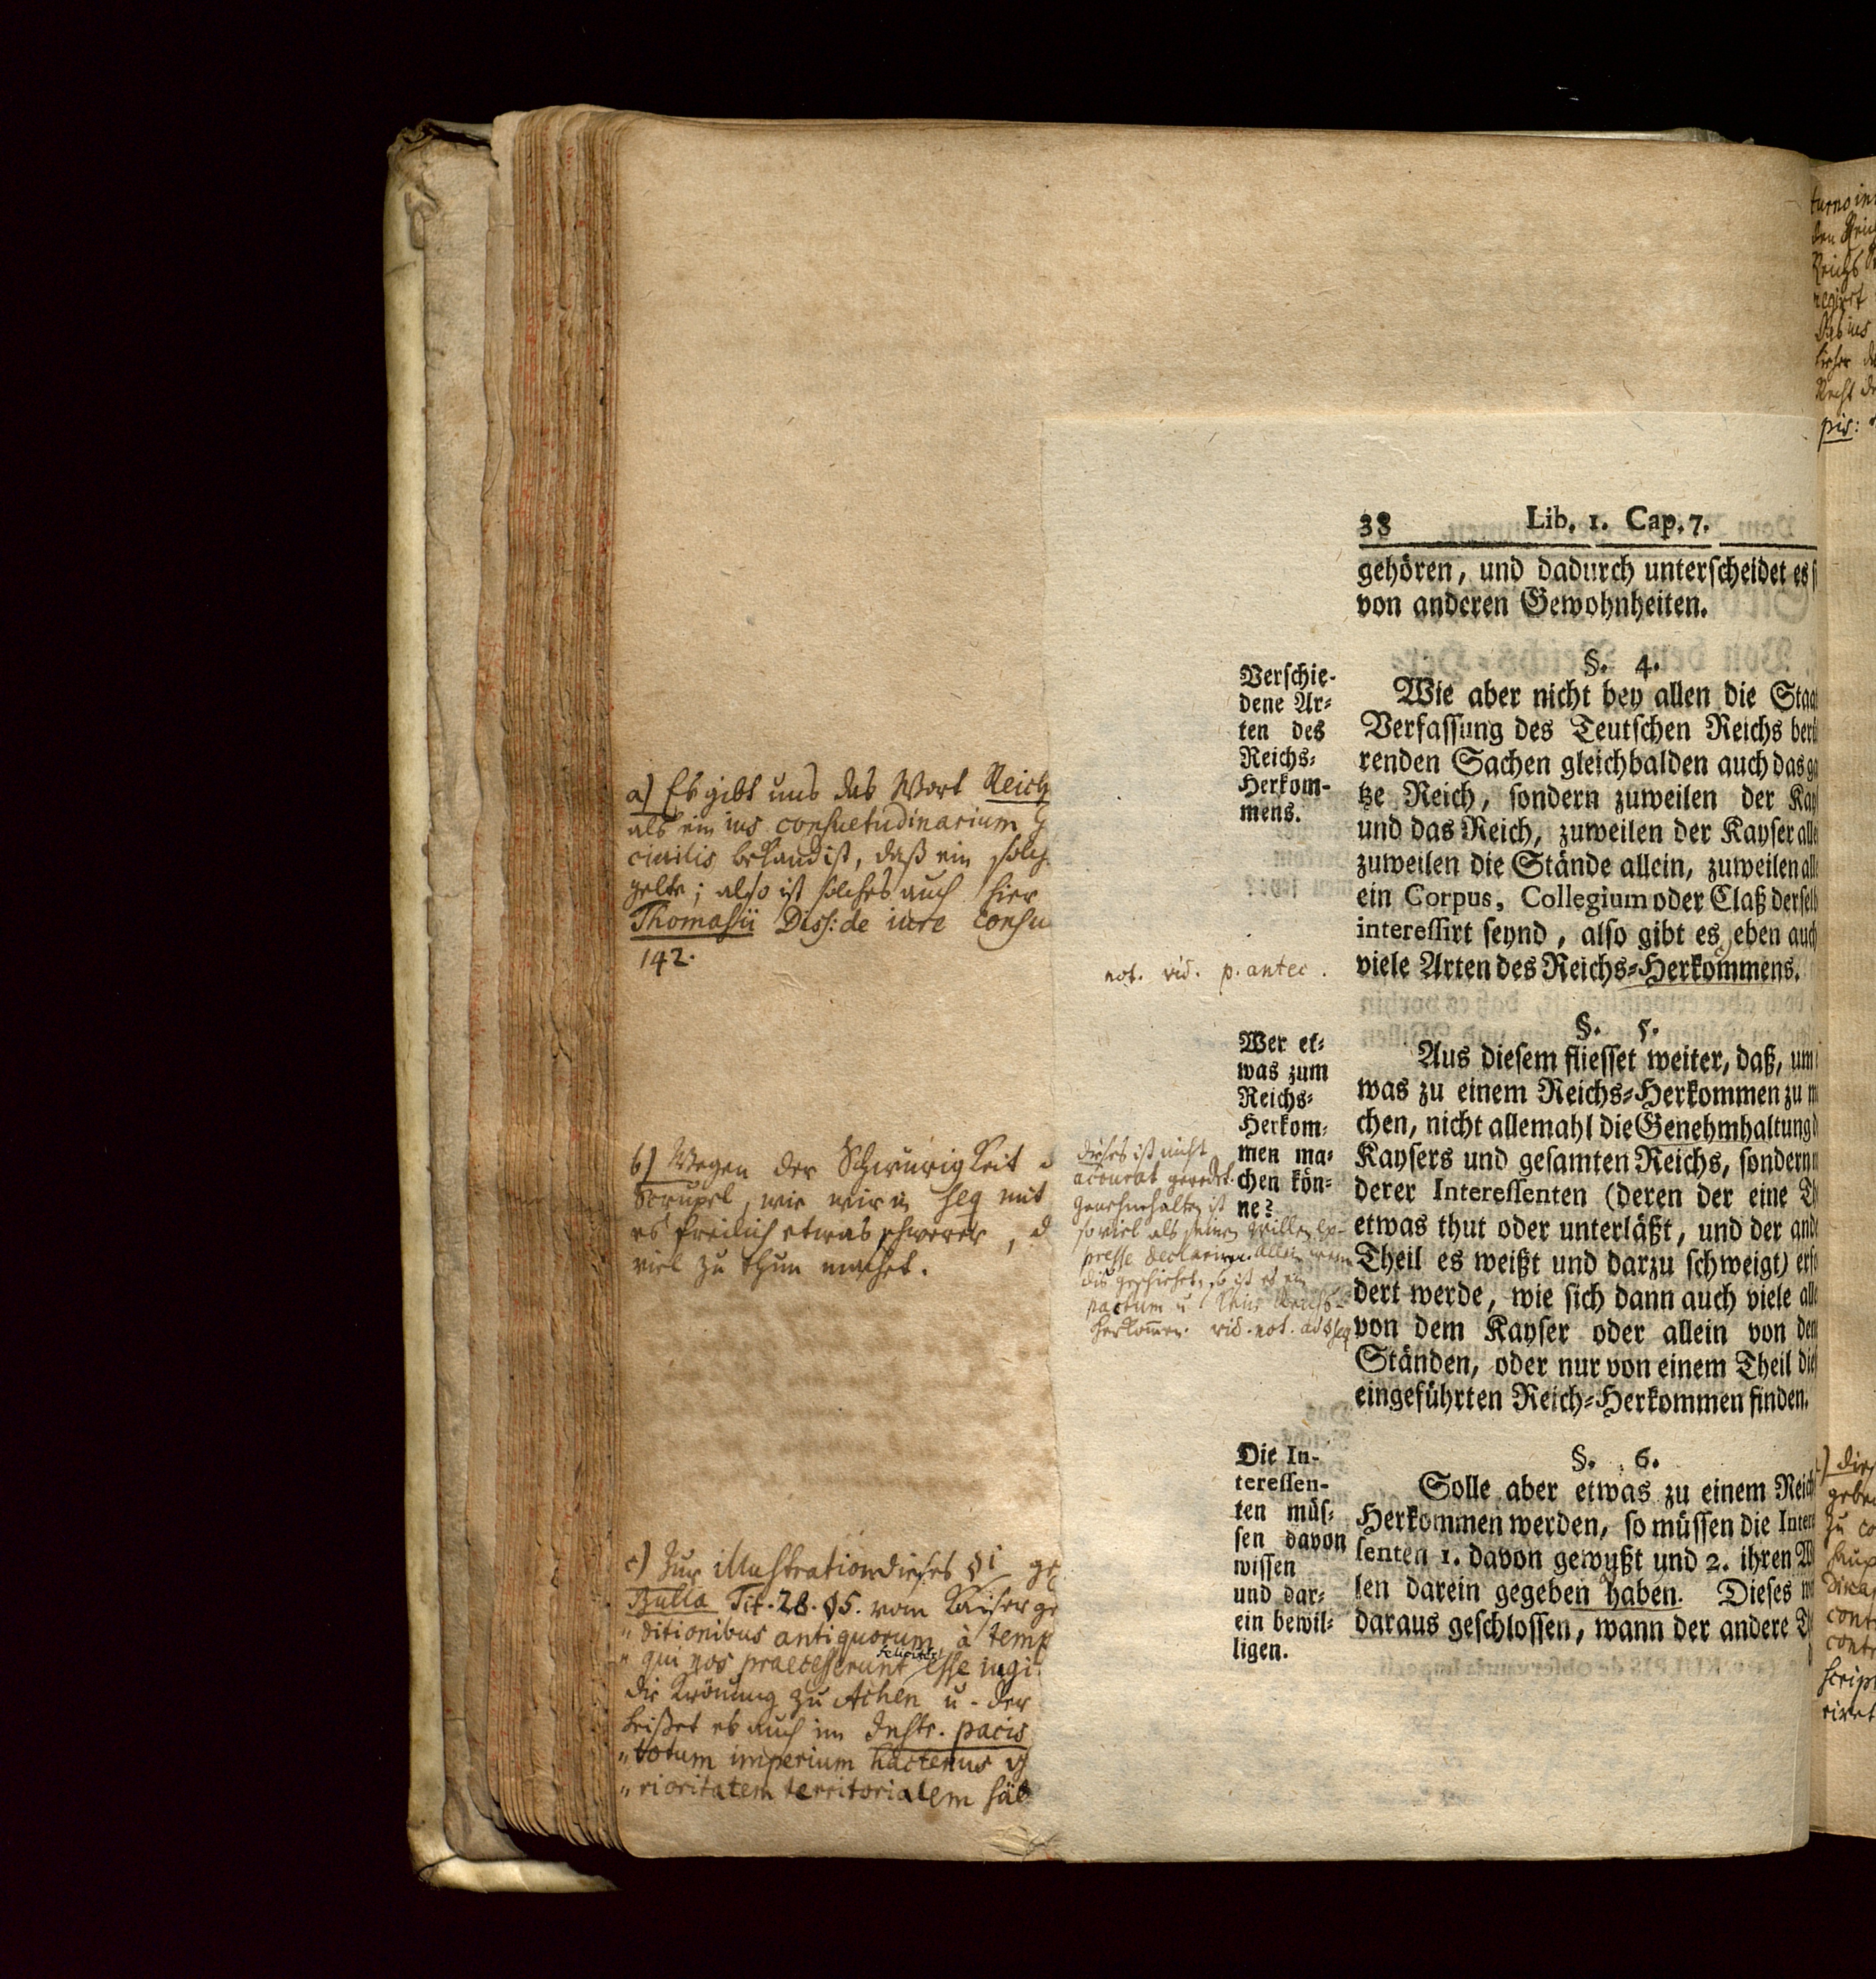 38 Lib. 1. Cap. 7.
gehören, und dadurch unterscheidet es
von anderen Gewohnheiten.
Verschie-
dene Ar-
ten des
Reichs-
Herkom-
mens.
§. 4.
Wie aber nicht bey allen die Staa
Verfassung des Teutschen Reichs berü
renden Sachen gleichbalden auch das ga
tze Reich, sondern zuweilen der Kay
und das Reich, zuweilen der Kayser alle
zuweilen die Stände allein, zuweilen alle
ein Corpus, Collegium oder Claß derselb
interessirt seynd, also gibt es eben auch
viele Arten des Reichs-Herkommens.
not. vid. p. antec.
Wer et-
was zum
Reichs-
Herkom-
men ma-
chen kön-
ne?
§. 5.
Aus diesem fliesset weiter, daß, um
was zu einem Reichs-Herkommen zu m
chen, nicht allemahl die Genehmhaltung d
Kaysers und gesamten Reichs, sondern
derer Interessenten (deren der eine Th
etwas thut oder unterläßt, und der ande
Theil es weißt und darzu schweigt) erfo
dert werde, wie sich dann auch viele alle
von dem Kayser oder allein von den
Ständen, oder nur von einem Theil die
eingeführten Reich-Herkommen finden.
dieses ist nicht
accurat geredet.
Genehmhalten ist
so viel als seinen Willen ex-
presse declariren. Allein wenn
dis geschiehet, so ist es ein
pactum u. kein Reichs-
herkommen. vid. not. ad § seq
Die In-
teressen-
ten müs-
sen davon
wissen
und dar-
ein bewil-
ligen.
§. 6.
Solle aber etwas zu einem Reich
Herkommen werden, so müssen die Inter
senten 1. davon gewußt und 2. ihren W
len darein gegeben haben. Dieses
daraus geschlossen, wann der andere T
a) Es gibt uns das Wort Reich
als ein ius consuetudinarium
civilis bekand ist, daß ein solch
gelte; also ist solches auch hier
Thomasii Diss: de iure consu
142.
b) Wegen der Schwürigkeit
Scrupel, wie wir in seq mit
es freilich etwas schwerer, d
viel zu thun machet.
c) Zur illustration dieses §i
Bulla Tit. 28. §5. vom Kaiser ge
" ditionibus antiquorum, à temp
" qui nos praecesserunt feliciter esse iugi
die Krönung zu Achen u. der
heißet es auch im Instr. pacis
" totum imperium hactenus
" rioritatem territorialem
den
Reichs
regirt
Das ius
Recht
pis:
gebe
zu
cont
cont
script